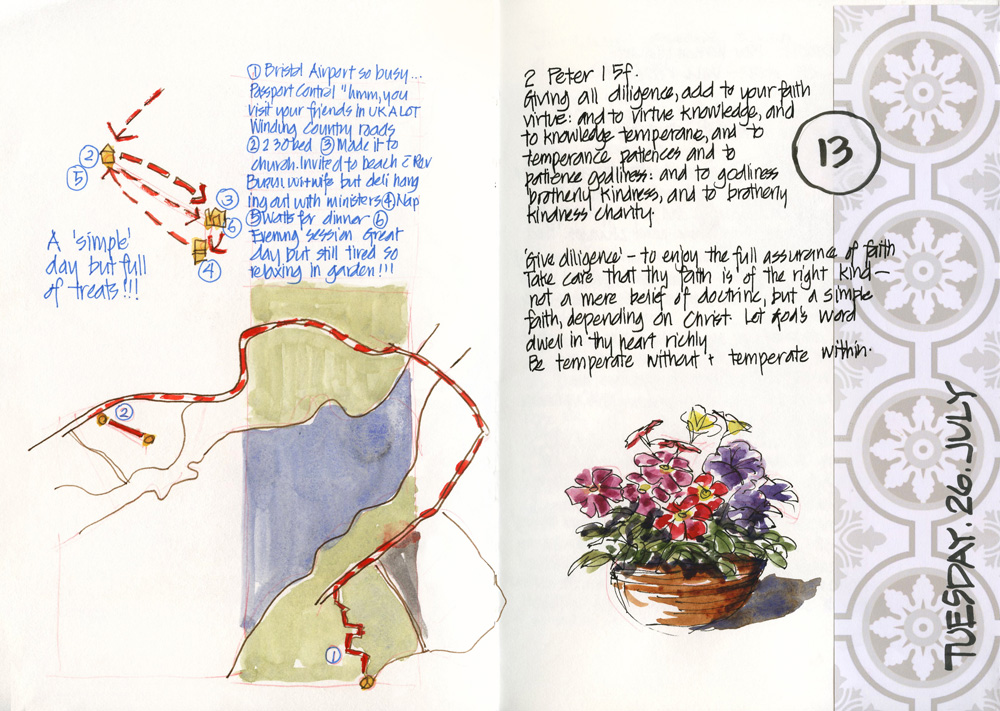 ① Bristol Airport so busy...
Passport Control "hmm, you
visit your friends in UK A LOT
Winding country roads
② 230 bed ③ Made it to
church. Invited to beach c̄ Rev
but deli hang
ing out with ministers ④ Nap
⑤ Watts for dinner ⑥
Evening session Great
day but still tired so
relaxing in garden!!!
②
⑤
③
⑥
④
A 'simple'
day but full
of treats!!!
②
①
2 Peter 1 5f.
Giving all diligence, add to your faith
virtue: and to virtue knowledge, and
to knowledge temperane, and to
temperance patiences and to
patience godliness: and to godlines
brotherly kindness, and to brotherly
kindness charity.
13
'Give diligence' - to enjoy the full assurance of faith
Take care that thy faith is of the right kind —
not a mere belief of doctrine, but a simple
faith, depending on Christ. Let God's Word
dwell in thy heart richly
Be temperate without + temperate within.
TUESDAY.26.JULY